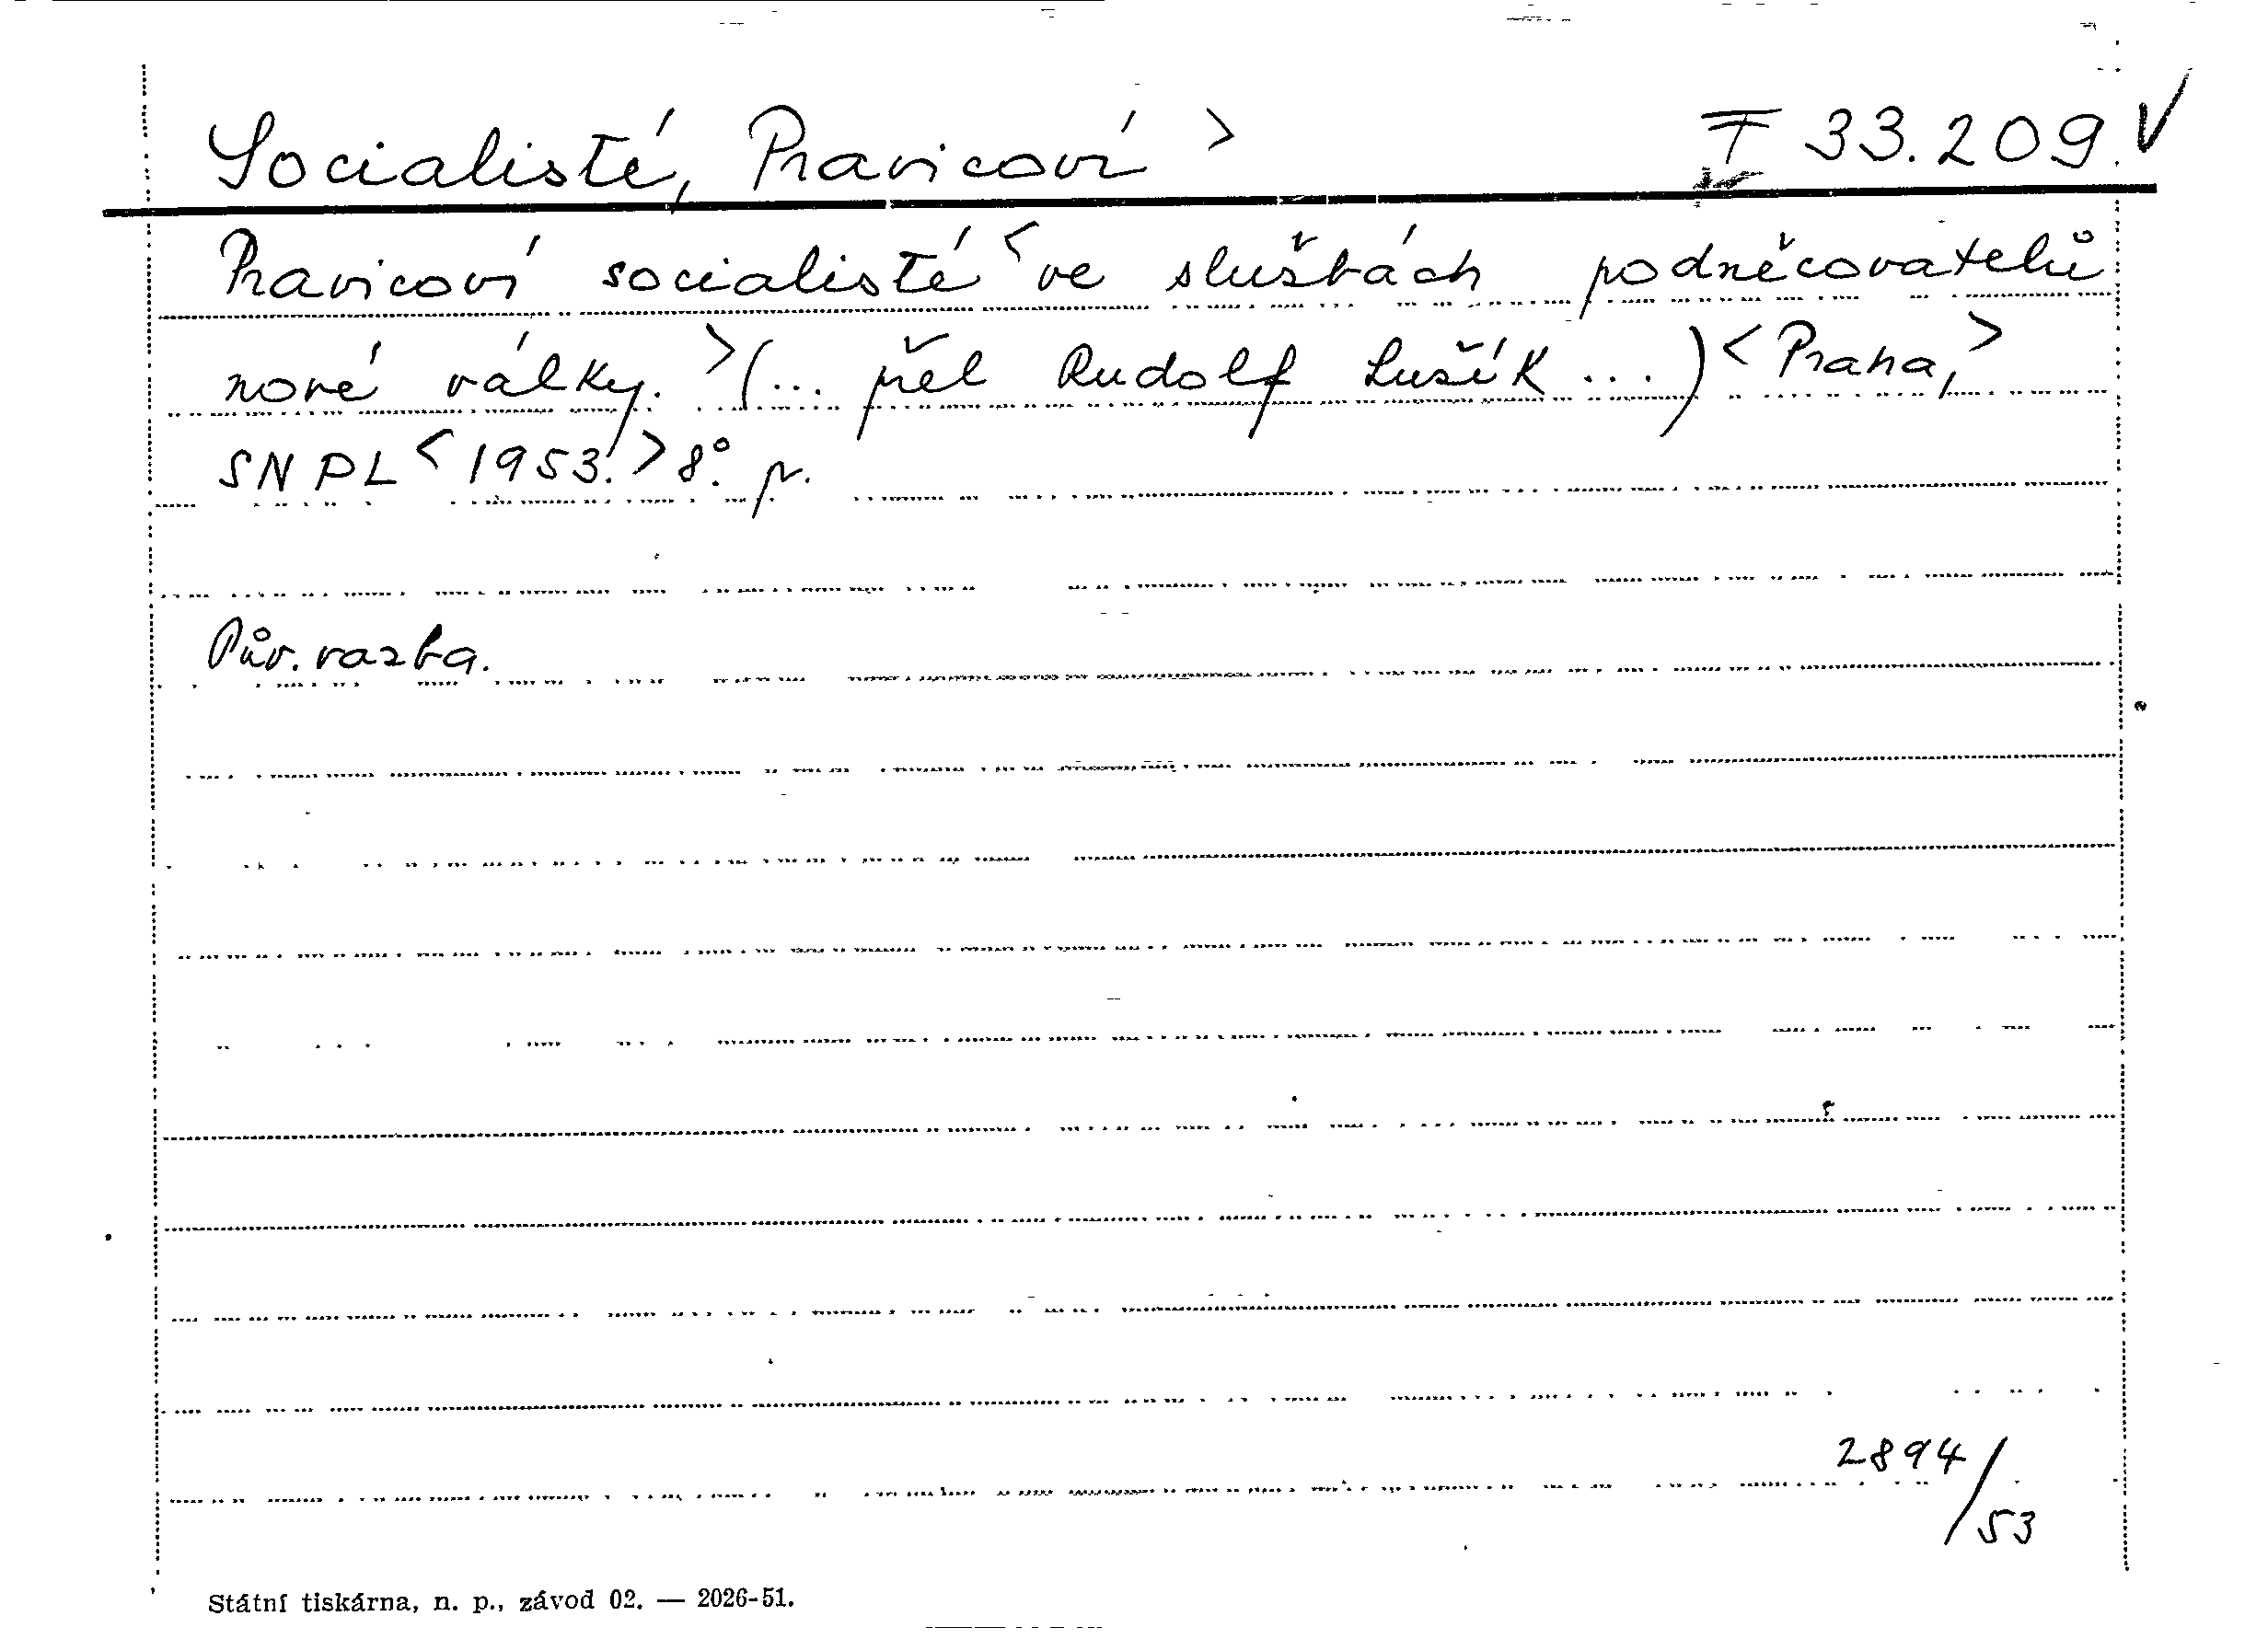 Socialisté, Pravicoví > F 33.209.
Pravicoví socialisté < ve službách podněcovatelů
nové války. > (... přel Rudolf Lušík ...) < Praha, >
SNPL < 1953. > 8°. p.
Pův. vazba.
2894/
53
Státní tiskárna, n. p., závod 02. — 2026-51.